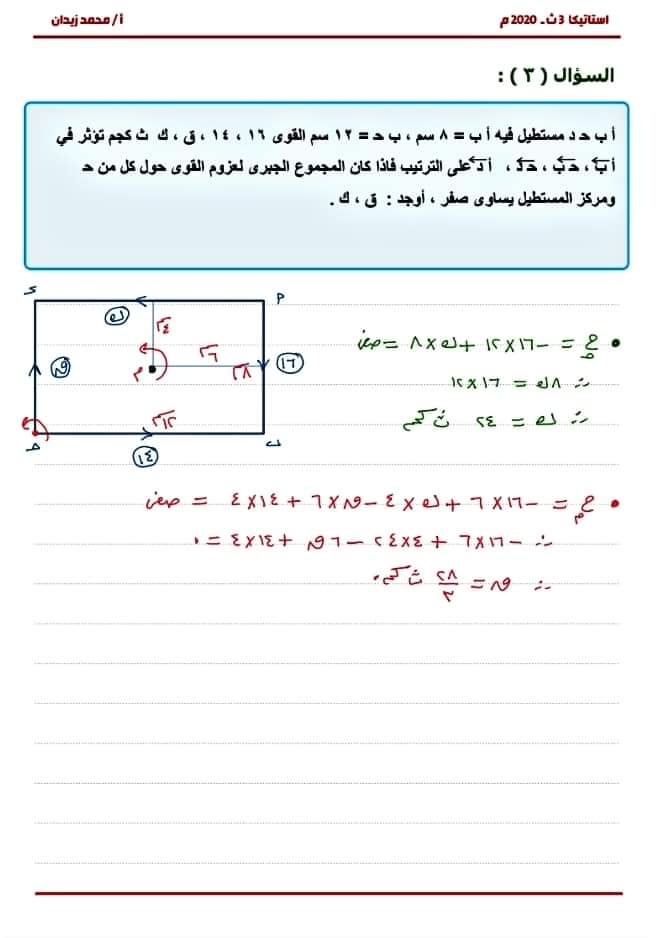 استاتيكا 3ث - 2020 م
أ / محمد زيدان
السؤال ( ٣ ) :
أ ب حـ د مستطيل فيه أ ب = ٨ سم ، ب حـ = ١٢ سم القوى ١٦ ، ١٤ ، ق ، ك ث كجم تؤثر في
أب ، حـب ، حـد ، أد على الترتيب فاذا كان المجموع الجبرى لعزوم القوى حول كل من حـ
ومركز المستطيل يساوى صفر ، أوجد : ق ، ك .
ء
ك
٤
٦
٨
م
١٦
ق
١٢
ب
حـ
١٤
ج حـ = - ١٦ × ١٢ + ك × ٨ = صفر
∴ ٨ ك = ١٦ × ١٢
∴ ك = ٢٤ ث كجم
ج م = - ١٦ × ٦ + ك × ٤ - ق × ٦ + ١٤ × ٤ = صفر
∴ - ١٦ × ٦ + ٢٤ × ٤ - ٦ ق + ١٤ × ٤ = ٠
∴ ق = ٢٨/٣ ث كجم .